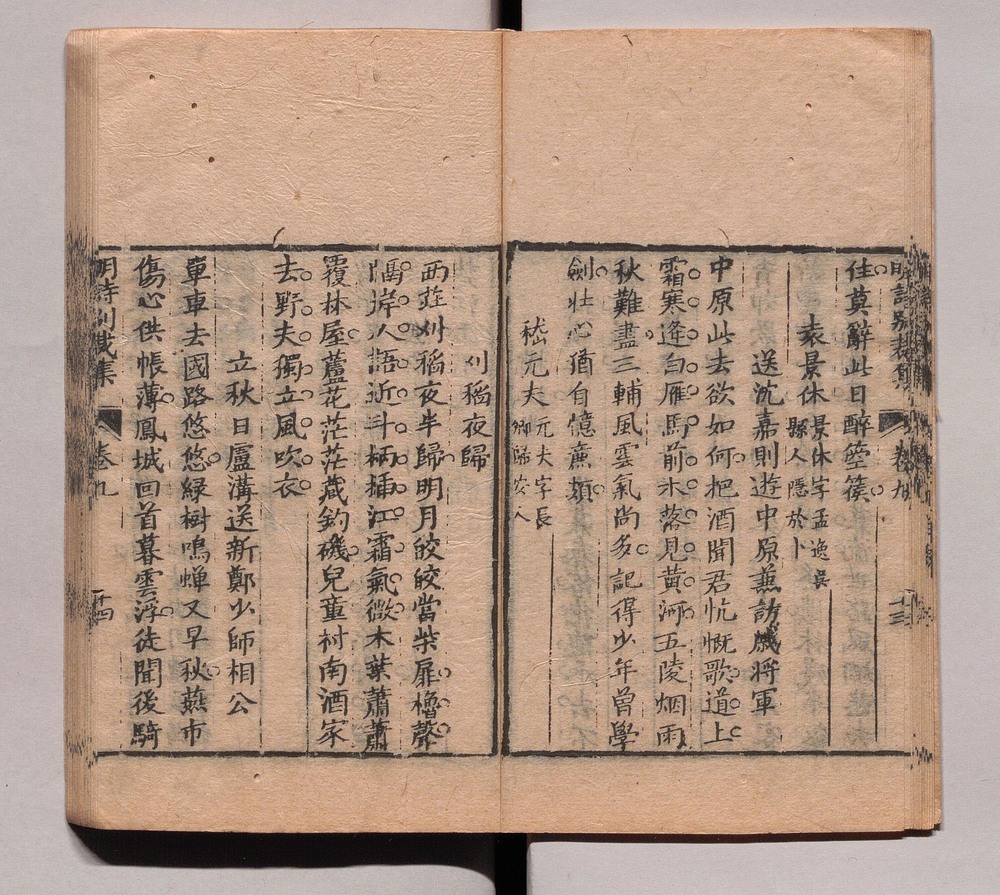 明詩別裁集 卷九 十三
住莫辭此日醉箜篌
袁景休 景休字孟逸吳
縣人隱於卜
送沈嘉則遊中原兼訪戚將軍
中原此去欲如何把酒聞君忼慨歌道上
霜寒逢白雁馬前氷落見黃河五陵烟雨
秋難盡三輔風雲氣尚多記得少年曾學
劍壯心猶自憶廉頗
嵇元夫 元夫字長
卿歸安人
刈稻夜歸
西莊刈稻夜半歸明月皎皎當柴扉櫓聲
隔岸人語近斗柄插江霜氣微木葉蕭蕭
覆林屋蘆花茫茫藏釣磯兒童村南酒家
去野夫獨立風吹衣
立秋日盧溝送新鄭少師相公
單車去國路悠悠綠樹鳴蟬又早秋燕市
傷心供帳薄鳳城回首暮雲浮徒聞後騎
明詩別裁集 卷九 十四